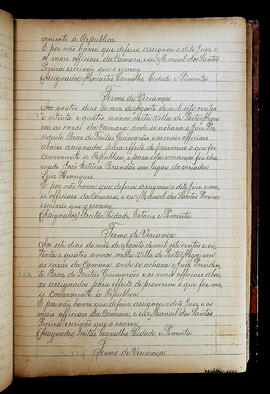 veniente a Republica
E por não haver que deferir assignou o dito Juiz e
os mais officiaes da Camara, eu Manoel dos Santos
Pereira escrivão que o escrevy
(Assignados) Carvalho, Cidade e Pimenta
Termo de Vereança
Aos quatro dias do mes de Agosto de mil sete centos
e oitenta e quatro annos nesta Villa de
em as casas da Camara onde se achava o Juiz Pre
sidente Braz de Freitas Guimarães e os mais officiaes
abaixo assignados para effeito de proverem o que for
conveniente a Republica, e para
mado José Brandão em lugar do vereador
Luiz Henriques
E por não haver que deferir assignou o dito Juiz e ma
is officiaes da Camara, eu Manoel dos Santos Pereira
escrivão que o escrevy
(Assignados) Freitas, Cidade, e Pimenta
Termo de Vereança
Aos sete dias do mes de Agosto de mil sete centos e oi
tenta e quatro annos nesta Villa de
as casas da Camara onde se achava o Juiz Presiden
te Braz de Freitas Guimarães e os mais officiaes abai
xo assignados para effeito de proverem o que for ma
is conveniente a Republica
E por não haver que deferir assignou o dito Juiz e os
mais officiaes da Camara, eu Manoel dos Santos
Pereira escrivão que o escrevy
(Assignados) Freitas, Carvalho, Cidade, e Pimenta
Termo de Vereança